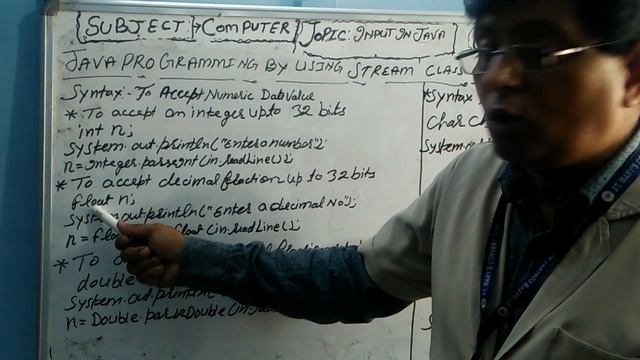 SUBJECT → COMPUTER
TOPIC: INPUT IN JAVA
JAVA PROGRAMMING BY USING STREAM CLASS
Syntax:- To Accept Numeric Data Value
* To accept an integer upto 32 bits
int n;
System.out.println("Enter a number");
n = Integer.parseInt(in.readLine());
* To accept decimal fraction up to 32 bits
float n;
System.out.println("Enter a decimal No");
n = Flo Float (in.readLine());
* To
double
System.out.println("
n = Double.parseDouble(in.
*Syntax
Char Ch
System.ou
ST. MARY'S CONVENT